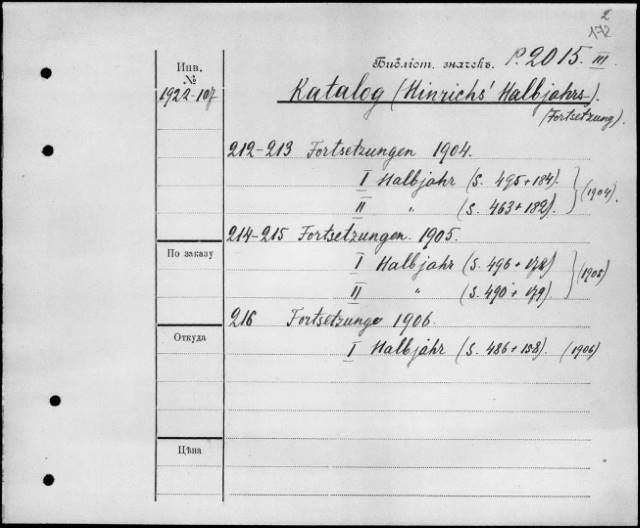 2
172
Инв. №
Библіот. значекъ. P. 2015. III
1922-107
Katalog (Hinrichs' Halbjahrs-).
(Fortsetzung)
212-213 Fortsetzungen 1904.
I Halbjahr (S. 495+184).
II " (S. 463+182).
(1904).
214-215 Fortsetzungen. 1905.
По заказу
I Halbjahr (S. 496+178)
II " (S. 490+179).
(1905)
216 Fortsetzung 1906.
Откуда
I Halbjahr (S. 486+158). (1906)
Цѣна